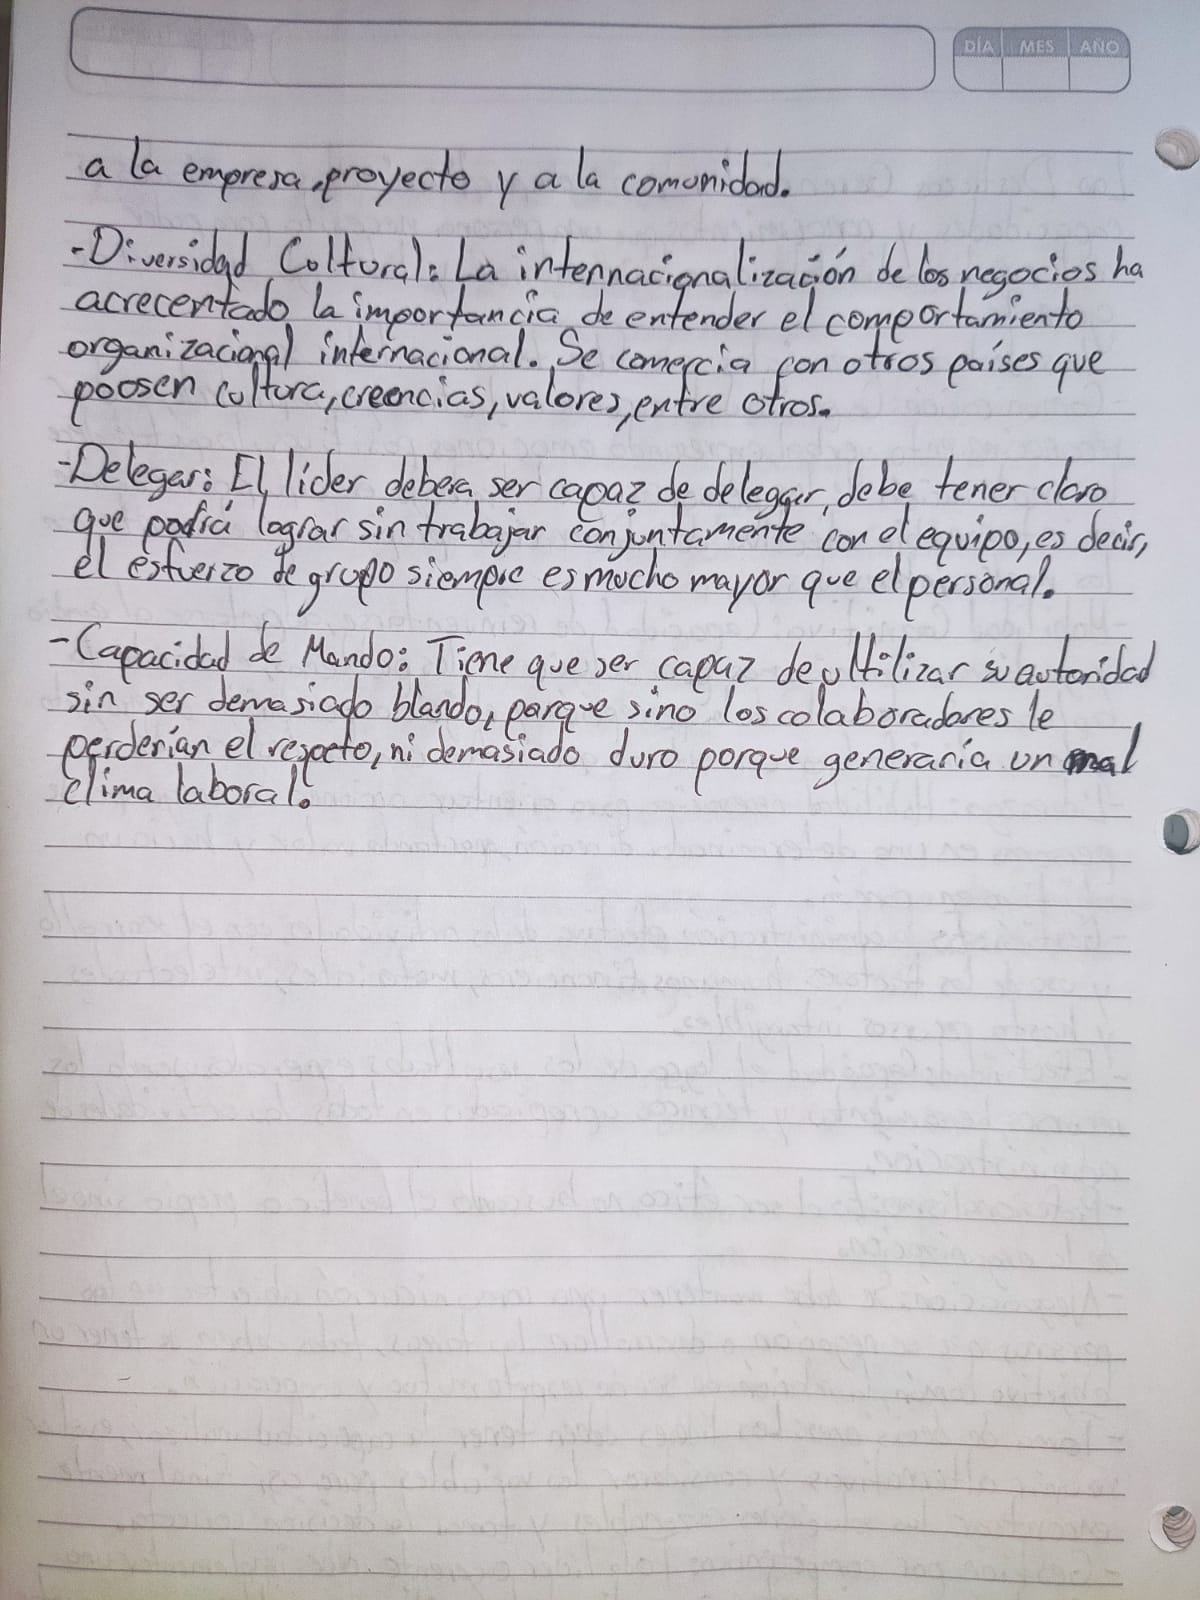 DÍA MES AÑO
a la empresa, proyecto y a la comunidad.
-Diversidad Cultural: La internacionalización de los negocios ha
acrecentado la importancia de entender el comportamiento
organizacional internacional. Se comercia con otros países que
poosen cultura, creencias, valores, entre otros.
-Delegar: El líder debera ser capaz de delegar, debe tener claro
que podría lograr sin trabajar conjuntamente con el equipo, es decir,
el esfuerzo de grupo siempre es mucho mayor que el personal.
-Capacidad de Mando: Tiene que ser capaz de ultilizar su autoridad
sin ser demasiado blando, porque sino los colaboradores le
perderían el respeto, ni demasiado duro porque generaría un mal
clima laboral.